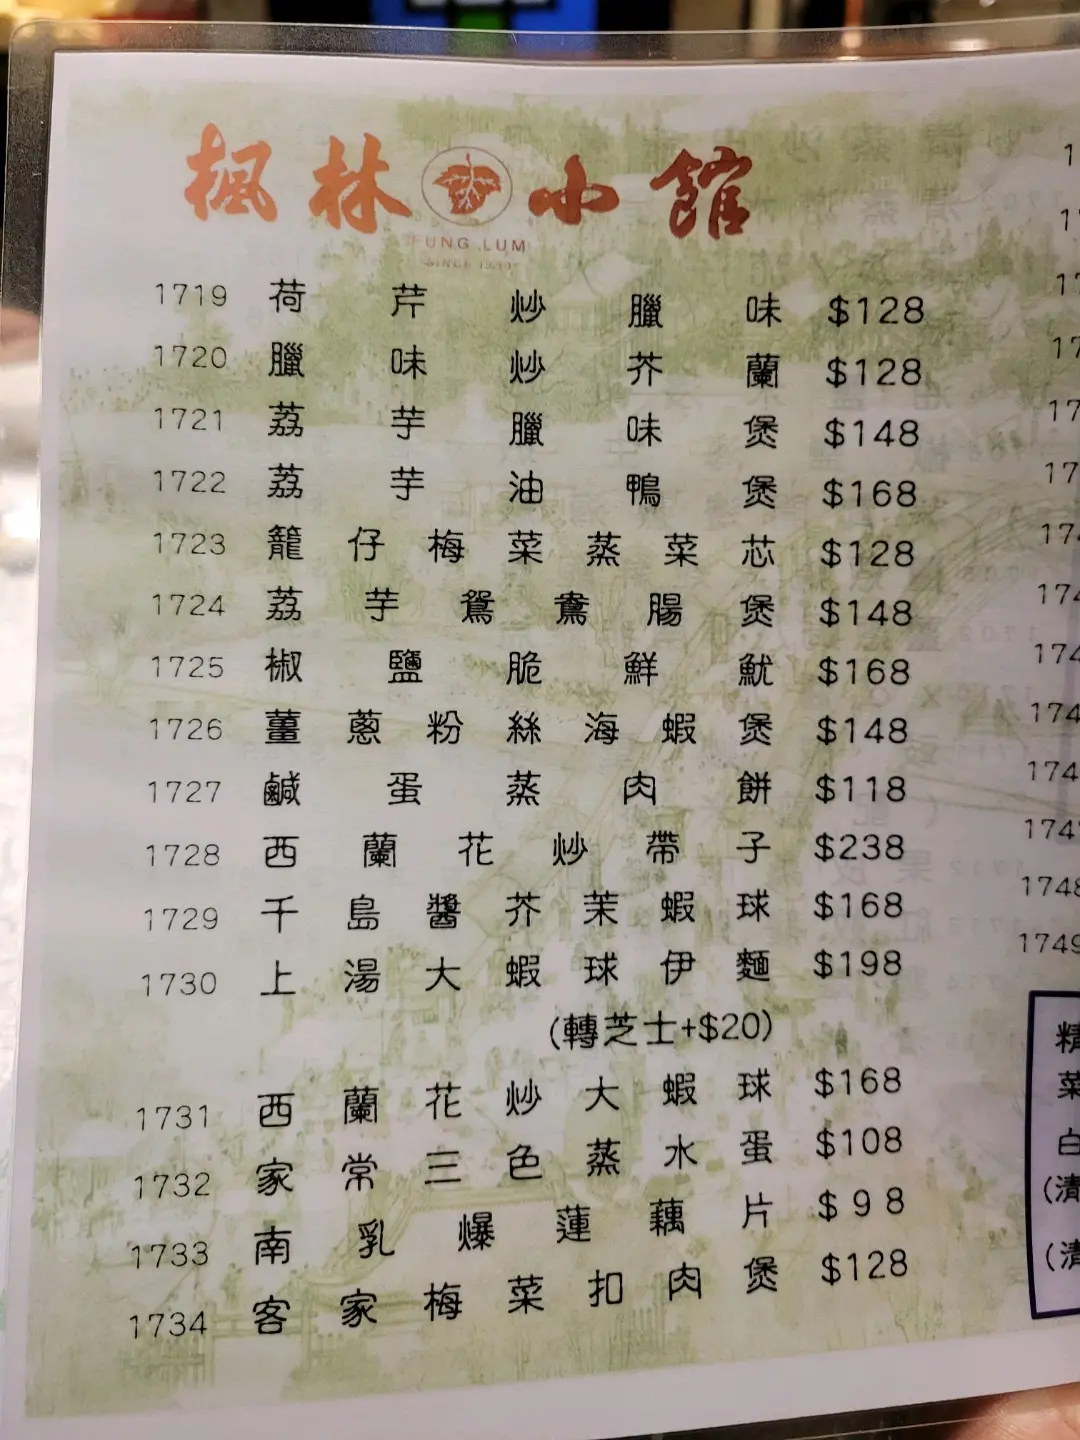 楓林小館
FUNG LUM
1719 荷芹炒臘味 $128
1720 臘味炒芥蘭 $128
1721 荔芋臘味煲 $148
1722 荔芋油鴨煲 $168
1723 籠仔梅菜蒸菜芯 $128
1724 荔芋鴛鴦腸煲 $148
1725 椒鹽脆鮮魷 $168
1726 薑蔥粉絲海蝦煲 $148
1727 鹹蛋蒸肉餅 $118
1728 西蘭花炒帶子 $238
1729 千島醬芥茉蝦球 $168
1730 上湯大蝦球伊麵 $198
(轉芝士+$20)
1731 西蘭花炒大蝦球 $168
1732 家常三色蒸水蛋 $108
1733 南乳爆蓮藕片 $98
1734 客家梅菜扣肉煲 $128
1748
1749
精
菜
白
(清
(清